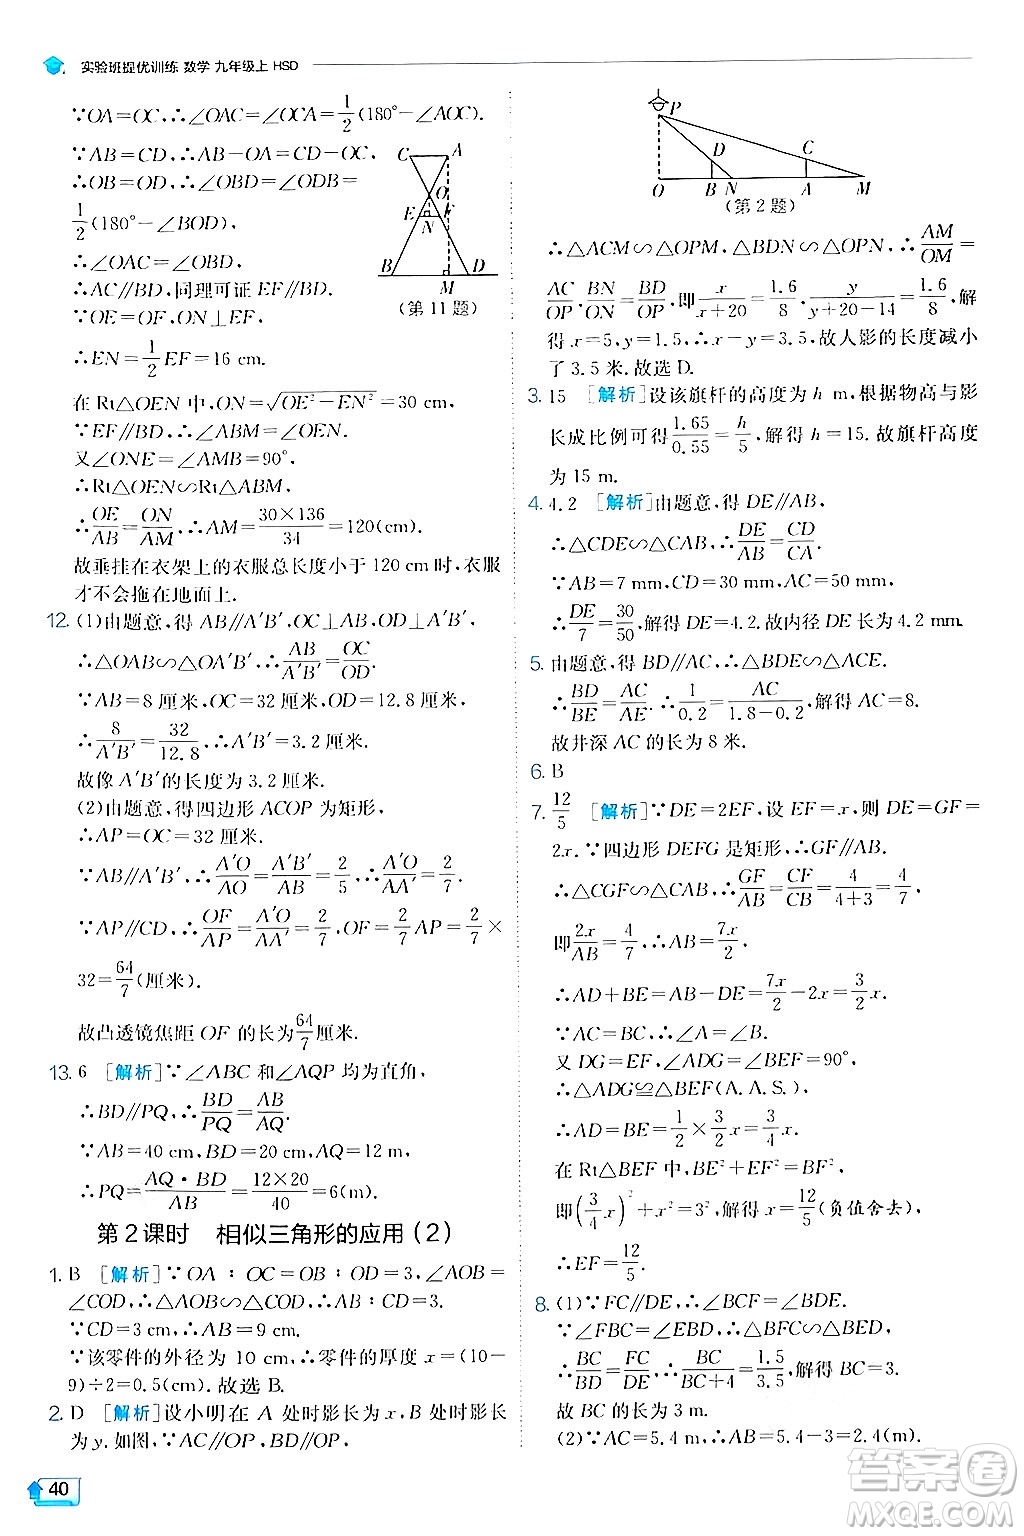 实验班提优训练 数学 九年级上 HSD
∵OA=OC,∴∠OAC=∠OCA=1/2(180°-∠AOC).
∵AB=CD,∴AB-OA=CD-OC,
∴OB=OD,∴∠OBD=∠ODB=
1/2(180°-∠BOD),
∴∠OAC=∠OBD,
∴AC//BD,同理可证EF//BD.
∵OE=OF,ON⊥EF,
∴EN=1/2EF=16 cm.
在 Rt△OEN 中,ON=√(OE²-EN²)=30 cm.
∵EF//BD,∴∠ABM=∠OEN.
又∠ONE=∠AMB=90°,
∴Rt△OEN∽Rt△ABM,
∴OE/AB=ON/AM,∴AM=30×136/34=120(cm).
故垂挂在衣架上的衣服总长度小于 120 cm 时,衣服
才不会拖在地面上.
C A
O
E F
N
B D
M
(第 11 题)
12. (1)由题意,得 AB//A′B′,OC⊥AB,OD⊥A′B′,
∴△OAB∽△OA′B′,∴AB/A′B′=OC/OD.
∵AB=8 厘米,OC=32 厘米,OD=12.8 厘米,
∴8/A′B′=32/12.8,∴A′B′=3.2 厘米.
故像 A′B′的长度为 3.2 厘米.
(2)由题意,得四边形 ACOP 为矩形,
∴AP=OC=32 厘米.
∵AB//A′B′,∴A′O/AO=A′B′/AB=2/5,∴A′O/AA′=2/7.
∵AP//CD,∴OF/AP=A′O/AA′=2/7,∴OF=2/7AP=2/7×
32=64/7(厘米).
故凸透镜焦距 OF 的长为64/7厘米.
13. 6 [解析]∵∠ABC 和∠AQP 均为直角,
∴BD//PQ,∴BD/PQ=AB/AQ.
∵AB=40 cm,BD=20 cm,AQ=12 cm,
∴PQ=AQ·BD/AB=12×20/40=6(cm).
第 2 课时 相似三角形的应用(2)
1. B [解析]∵OA∶OC=OB∶OD=3,∠AOB=
∠COD,∴△AOB∽△COD,∴AB∶CD=3.
∵CD=3 cm,∴AB=9 cm.
∵该零件的外径为 10 cm,∴零件的厚度 x=(10-
9)÷2=0.5(cm).故选 B.
2. D [解析]设小明在 A 处时影长为 x,B 处时影长
为 y.如图,∵AC//OP,BD//OP,
P
D C
O B N A M
(第 2 题)
∴△ACM∽△OPM,△BDN∽△OPN,∴AM/OM=
AC/OP,BN/ON=BD/OP,即x/(x+20)=1.6/8,y/(y+20-14)=1.6/8,解
得 x=5,y=1.5,∴x-y=3.5,故人影的长度减小
了 3.5 米.故选 D.
3. 15 [解析]设该旗杆的高度为 h m,根据物高与影
长成比例可得1.65/0.55=h/5,解得 h=15.故旗杆高度
为 15 m.
4. 4.2 [解析]由题意,得 DE//AB,
∴△CDE∽△CAB,∴DE/AB=CD/CA.
∵AB=7 mm,CD=30 mm,AC=50 mm,
∴DE/7=30/50,解得 DE=4.2.故内径 DE 长为 4.2 mm.
5. 由题意,得 BD//AC,∴△BDE∽△ACE.
∴BD/BE=AC/AE,∴1/0.2=AC/(1.8-0.2),解得 AC=8.
故井深 AC 的长为 8 米.
6. B
7. 12/5 [解析]∵DE=2EF,设 EF=x,则 DE=GF=
2x.∵四边形 DEFG 是矩形,∴GF//AB.
∴△CGF∽△CAB,∴GF/AB=CF/CB=4/(4+3)=4/7,
即2x/AB=4/7,∴AB=7x/2.
∴AD+BE=AB-DE=7x/2-2x=3/2x.
∵AC=BC,∴∠A=∠B.
又 DG=EF,∠ADG=∠BEF=90°,
∴△ADG≌△BEF(A.A.S.).
∴AD=BE=1/2×3/2x=3/4x.
在 Rt△BEF 中,BE²+EF²=BF²,
即(3/4x)²+x²=3²,解得 x=12/5(负值舍去).
∴EF=12/5.
8. (1)∵FC//DE,∴∠BCF=∠BDE.
∵∠FBC=∠EBD,∴△BFC∽△BED,
∴BC/BD=FC/DE,∴BC/(BC+4)=1.5/3.5,解得 BC=3.
故 BC 的长为 3 m.
(2)∵AC=5.4 m,∴AB=5.4-3=2.4(m).
40
答案圈
MXQE.COM